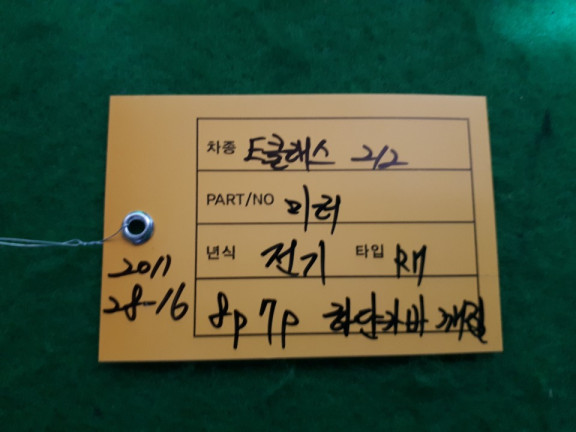 차종 E클래스 212
PART/NO 미러
년식 전기 타입 RH
2011
28-16
8p 7p 하단카바